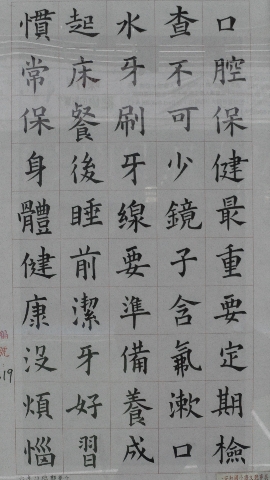 口腔保健最重要定期檢
查不可少鏡子含氟漱口
水牙刷牙線要準備養成
起床餐後睡前潔牙好習
慣常保身體健康沒煩惱
19